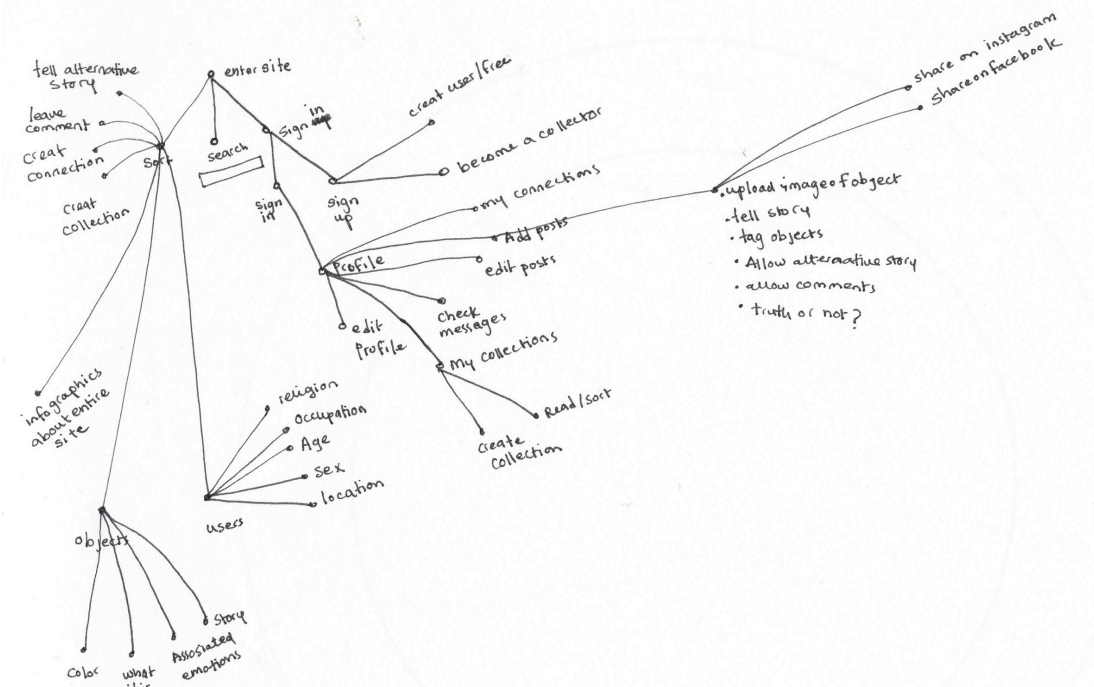 enter site
tell alternative
story
leave
comment
creat
connection
creat
collection
Sort
search
in
sign
sign
in
sign
up
creat user/free
become a collector
Profile
my connections
Add posts
edit posts
check
messages
edit
profile
My collections
Read/sort
create
collection
share on instagram
share on facebook
upload image of object
tell story
tag objects
Allow alternative story
allow comments
truth or not?
infographics
about entire
site
users
religion
occupation
Age
sex
location
objects
color
what
Assosiated
emotions
story